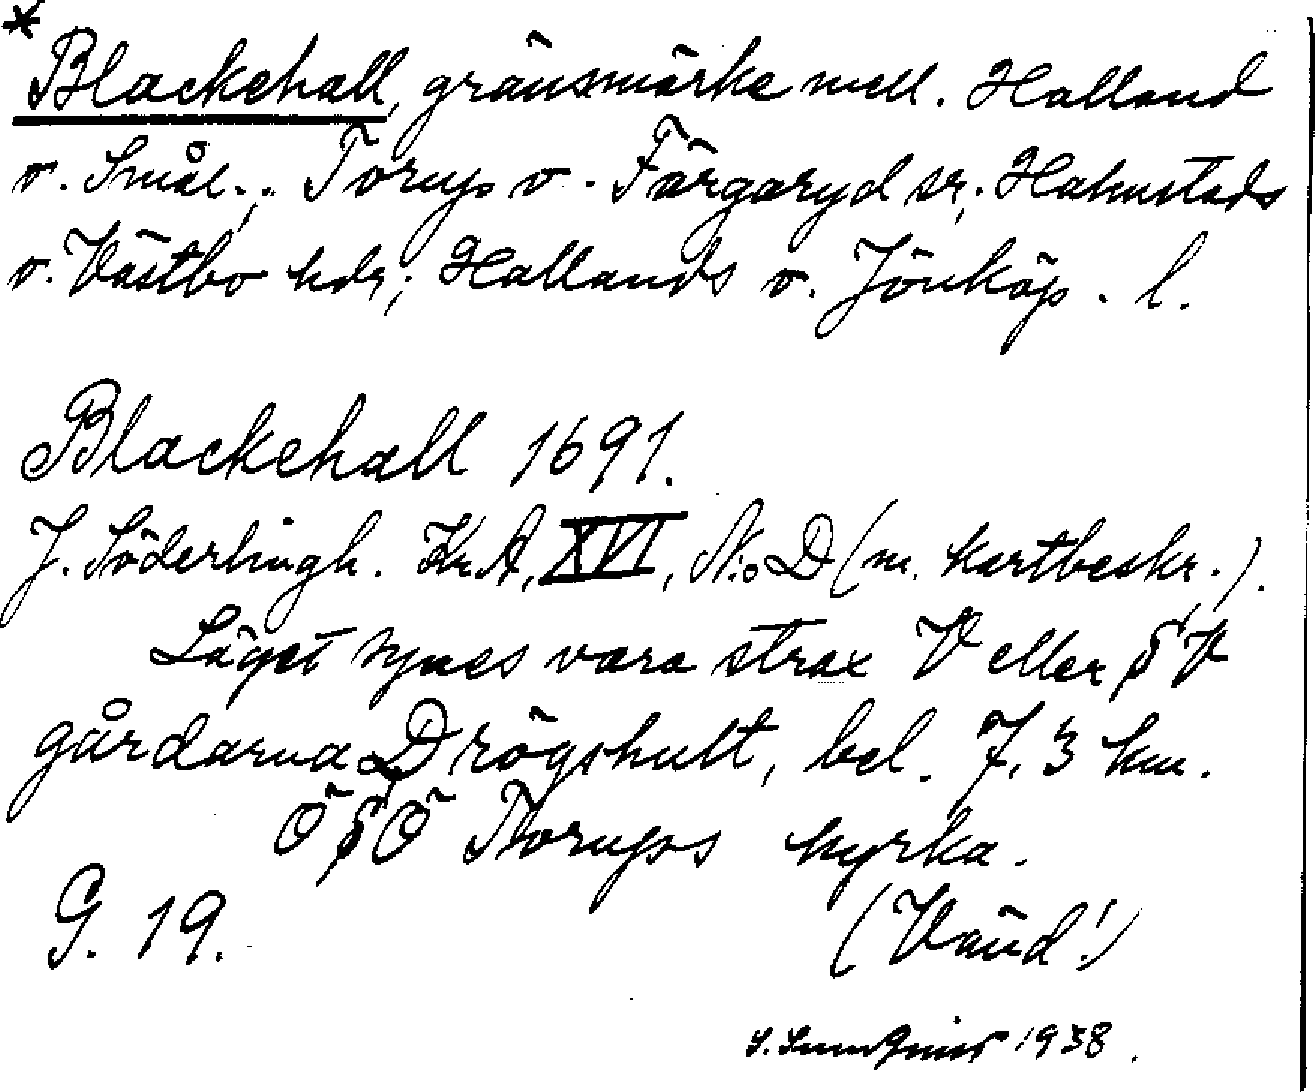 *
Blackehall, gränsmärke mell. Halland
o. Smål.; Torups o. Färgaryd sr; Halmstads
o. Västbo hdr; Hallands o. Jönköp. l.
Blackehall 1691.
J. Söderlingh. Kr.A, XVI, N:o D (m. kartbeskr.).
Läget synes vara strax V eller SV
gårdarna Drögshult, bel. 7,3 km.
Ö SÖ Torups kyrka.
G. 19.
(Vänd!)
1938.